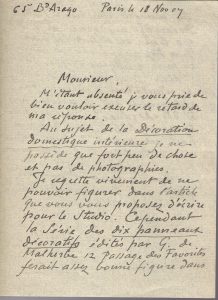 65 Bd Arago. Paris le 18 Nov 07
Monsieur,
M'étant absenté, je vous prie de
bien vouloir excuser le retard de
ma réponse.
Au sujet de la Décoration
domestique intérieure je ne
possède que fort peu de chose
et pas de photographies.
Je regrette vivement de ne
pouvoir figurer dans l'article
que vous vous proposez d'écrire
pour le Studio. Cependant
la Série des dix panneaux
décoratifs édités par G. de
Malherbe 12 passage des favorites
ferait assez bonne figure dans